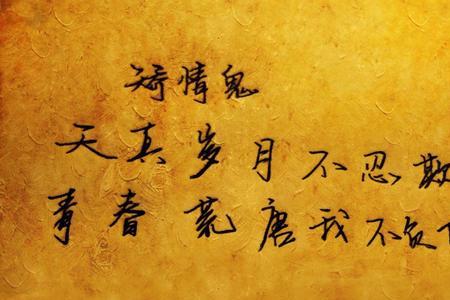 矫情鬼
天真岁月不忍欺
青春荒唐我不负